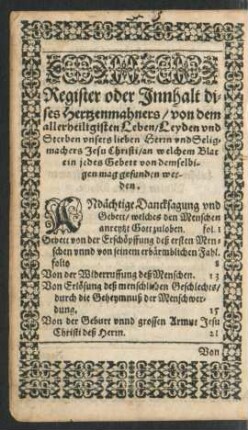 Register oder Jnnhalt di-
ses Hertzenmahners / von dem
allerheiligisten Leben / Leyden vnd
Sterben vnsers lieben Herrn vnd Selig-
machers Jesu Christi / an welchem Blat
ein jedes Gebett von demselbi-
gen mag gefunden wer-
den.
ANdächtige Dancksagung vnd
Gebett / welches den Menschen
anreytzt Gott zuloben. fol. 1
Gebett von der Erschöpffung deß ersten Men-
schen vnnd von seinem erbärmblichen Fahl.
folio 8
Von der Widerruffung deß Menschen. 13
Von Erlösung deß menschlichen Geschlechts /
durch die Geheymnuß der Menschwer-
dung. 15
Von der Geburt vnnd grossen Armut Jesu
Christi deß Herrn. 21
Von